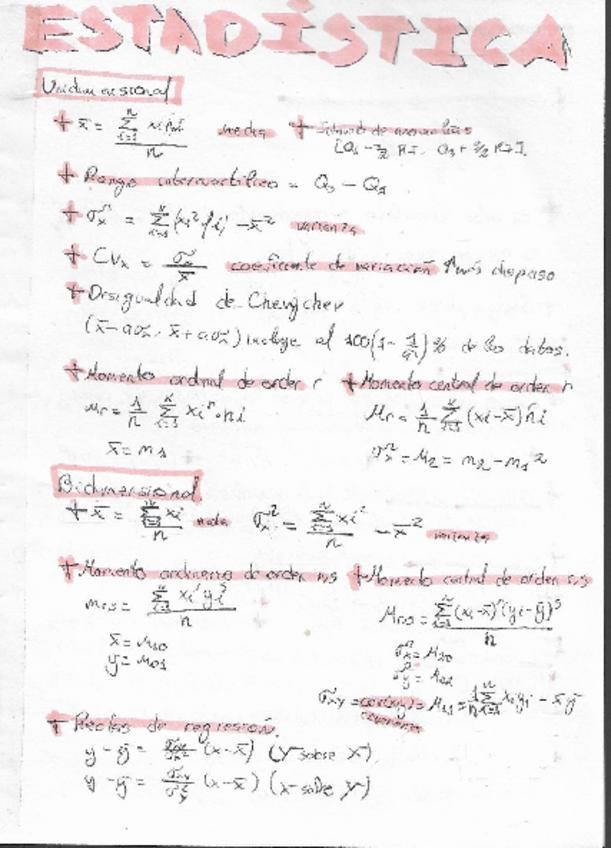 ESTADÍSTICA
Unidimensional
+ x̄ = Σ xi ni / n media
[Q1 - 3/2 RI, Q3 + 3/2 RI]
+ Rango intercuartílico = Q3 - Q1
+ σx² = Σ (xi² fi) - x̄² varianza
+ CVx = σx / x̄ coeficiente de variación ↑ más disperso
+ Desigualdad de Chevichev
(x̄ - aσx, x̄ + aσx) incluye al 100(1 - 1/a²) % de los datos.
+ Momento ordinal de orden r
mr = 1/n Σ xi^r · ni
x̄ = m1
+ Momento central de orden r
Mr = 1/n Σ (xi - x̄) ni
σx² = M2 = m2 - m1²
Bidimensional
+ x̄ = Σ xi / n media σx² = Σ xi² / n - x̄² varianza
+ Momento de orden r,s
mrs = Σ xi^r yi^s / n
x̄ = m10
ȳ = m01
+ Momento central de orden r,s
Mrs = Σ (xi - x̄)^r (yi - ȳ)^s / n
σxy = cov(x,y) = M11 = 1/n Σ xi yi - x̄ȳ
covarianza
+ Rectas de regresión.
y - ȳ = σxy / σx² (x - x̄) (Y sobre X)
y - ȳ = σxy / σ²y (x - x̄) (x sobre y)